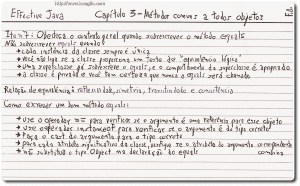 Effective Java Capítulo 3 - Métodos comuns a todos objetos
Item 8: Obedeça o contrato geral quando sobrescrever o método equals
Não sobrescrever equals quando:
→ cada instância da classe sempre é única
→ você não liga se a classe proporciona um teste de "equivalência lógica"
→ uma superclasse já sobrescreve o equals, e o comportamento da superclasse é apropriado
→ a classe é privada e você tem certeza que nunca o equals será chamado
Relação de equivalência: reflexividade, simetria, transitividade e consistência
Como escrever um bom método equals:
→ use o operador == para verificar se o argumento é uma referência para esse objeto
→ use operador instanceof para verificar se o argumento é do tipo correto
→ faça o cast do argumento para o tipo correto
→ para cada atributo significativo da classe, verifique se o atributo do argumento corresponde
→ não substitua o tipo Object na declaração do equals combina